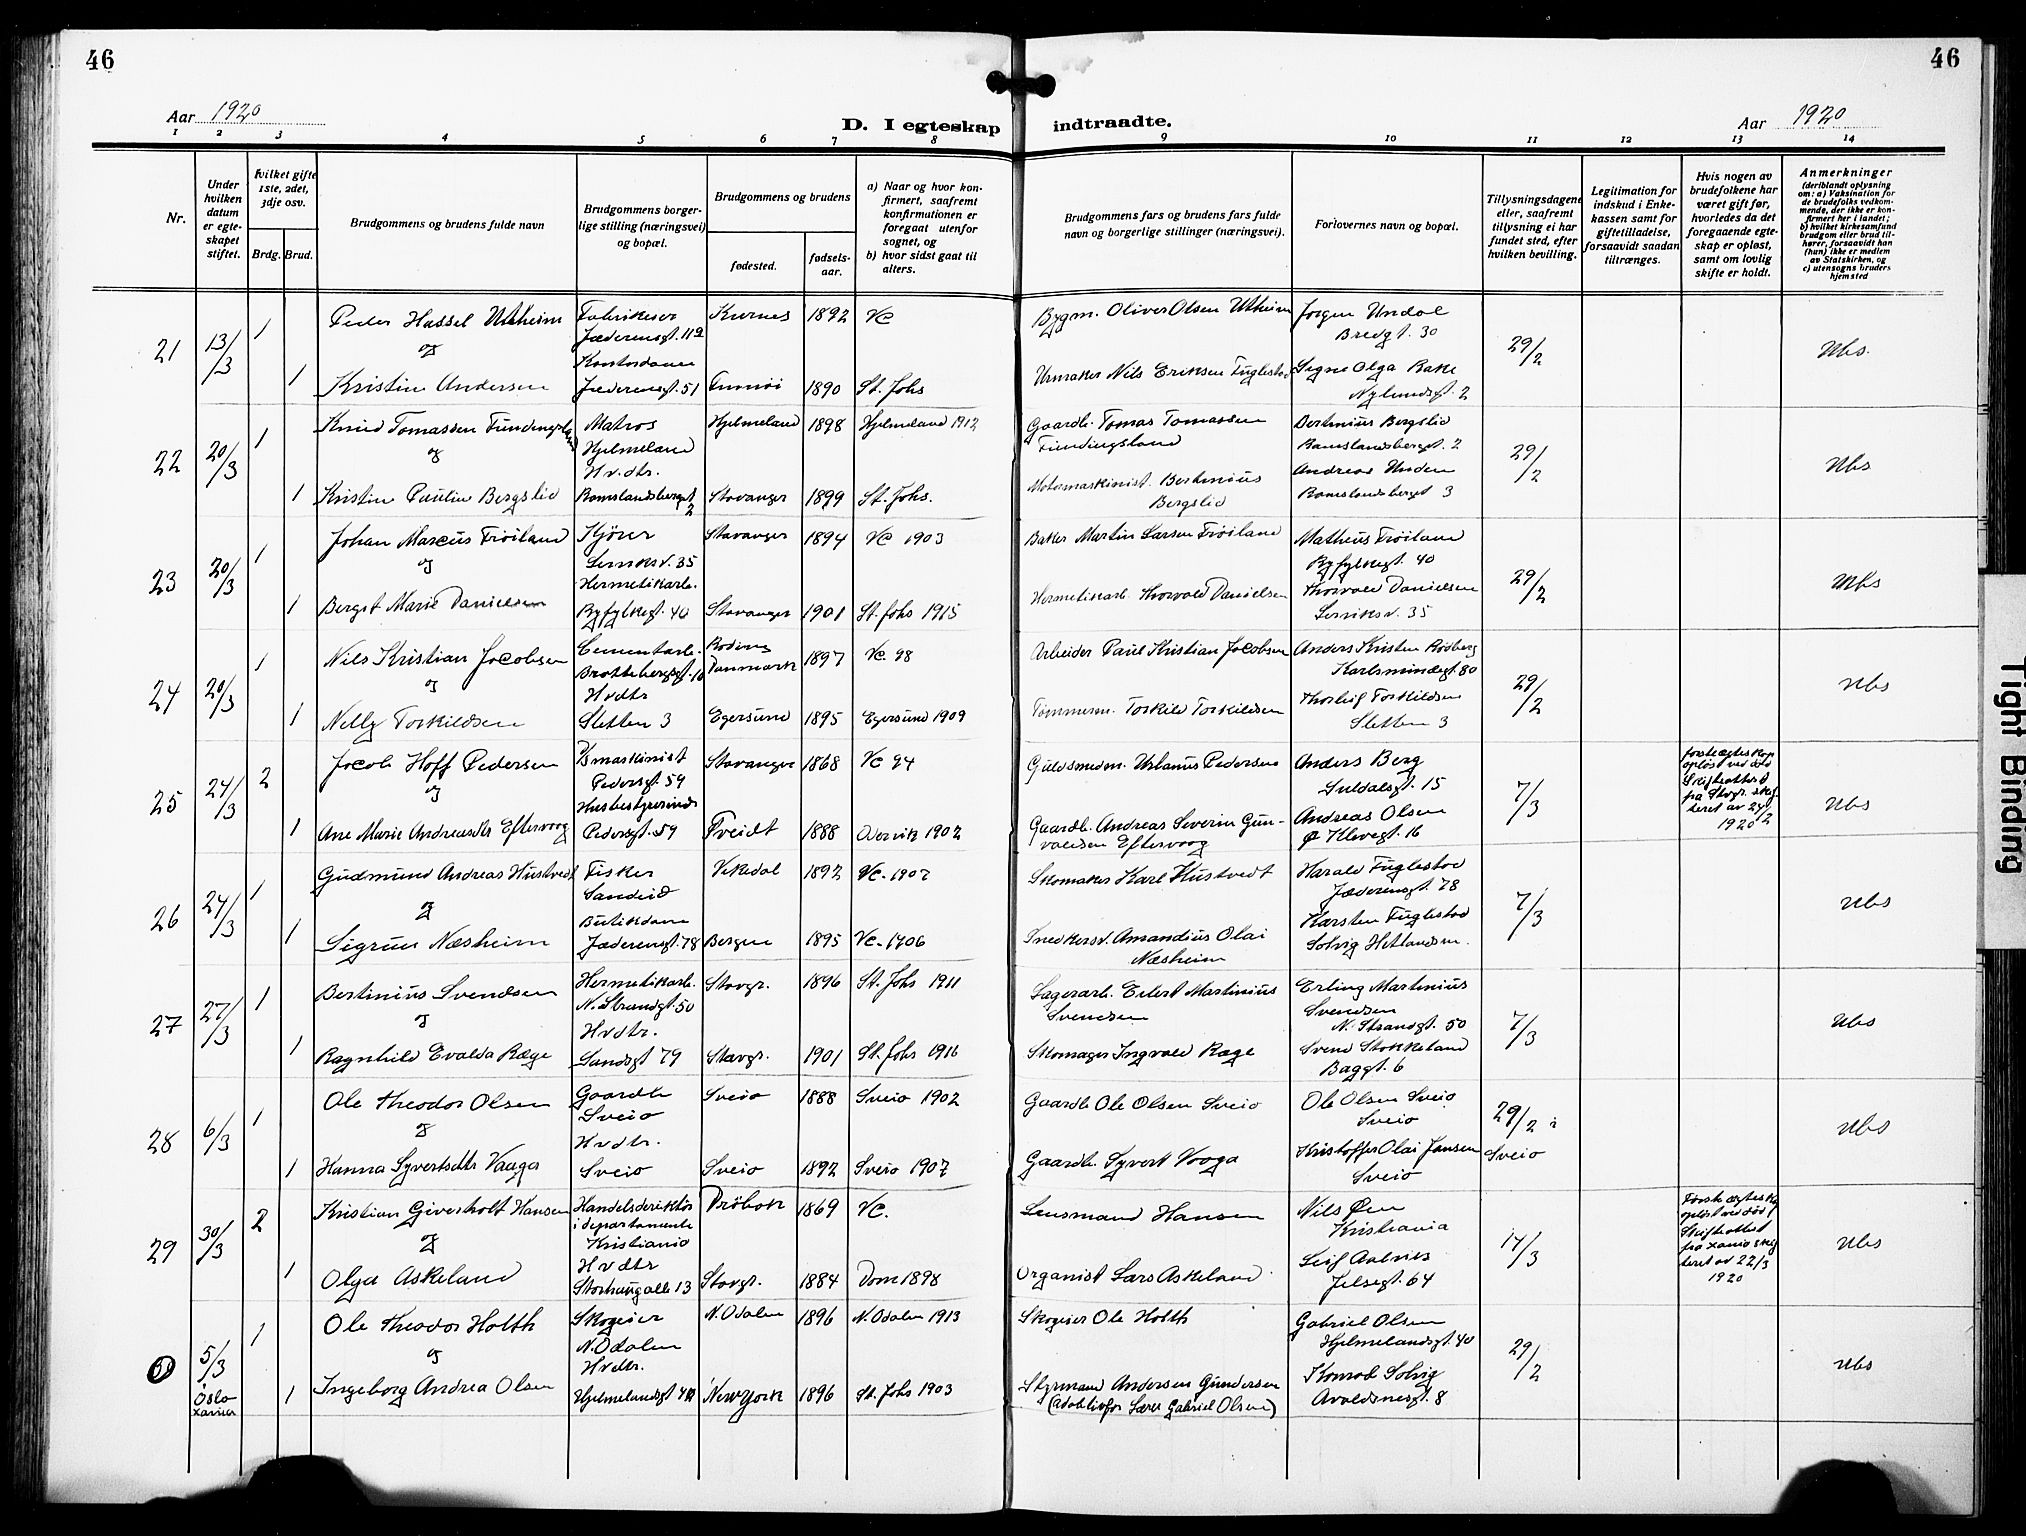 46
46
Aar 1920
D. I egteskap indtraadte.
Aar 1920
1 2 3 4 5 6 7 8 9 10 11 12 13 14
Nr.
Under hvilken datum er egteskapet stiftet.
Hvilket gifte 1ste, 2det, 3dje osv.
Brdg. Brud.
Brudgommens og brudens fulde navn
Brudgommens borgerlige stilling (næringsvei) og bopæl.
Brudgommens og brudens
fødested.
fødselsaar.
a) Naar og hvor konfirmert, saafremt konfirmationen er foregaat utenfor sognet, og
b) hvor sidst gaat til alters.
Brudgommens fars og brudens fars fulde navn og borgerlige stillinger (næringsvei).
Forlovernes navn og bopæl.
Tillysningsdagene eller, saafremt tillysning ei har fundet sted, efter hvilken bevilling.
Legitimation for indskud i Enkekassen samt for giftetilladelse, forsaavidt saadan tiltrænges.
Hvis nogen av brudefolkene har været gift før, hvorledes da det foregaaende egteskap er opløst, samt om lovlig skifte er holdt.
Anmerkninger
(deriblandt oplysning om: a) Vaksination for de brudefolks vedkommende, der ikke er konfirmert her i landet;
b) hvilket kirkesamfund brudgom eller brud tilhører, forsaavidt han (hun) ikke er medlem av Statskirken, og
c) utensogns bruders hjemsted
21 13/3 1 Peder Hassel Utheim
Jæderensgt. 119
1892 VC
Bygm. Oliver Olsen Utheim
Jørgen Undal
Bredgt. 30
29/2
Ubs.
og
Kontordame
1 Kristine Andersen
Jæderensgt. 51
1890 St. Johs
Urmaker Nils Eriksen Fuglestad
Signe Olga Bake
Nylundsgt. 2
22 20/3 1 Knud Tomassen Fundingsland
Matros
Hjelmeland
Hjelmeland 1898 Hjelmeland 1912
Gaardb. Tomas Tomassen
Fundingsland
Bertinius Bergslid
Ramslandsberget. 2
29/2
Ubs
og
Hv.dtr.
1 Kristine Pauline Bergslid
Ramslandsberget 2
Stavanger 1899 St. Johs.
Motormaskinist. Bertinius
Bergslid
Andreas Unden
Ramslandsberget 3
23 20/3 1 Johan Marcus Frøiland
Kjører
35
Stavanger 1894 VC 1903
Baker Martin Larsen Frøiland
Matheus Frøiland
Ryfylkegt. 40
29/2
Ubs
og
Hermetikarb.
1 Bergit Marie Danielsen
Ryfylkegt. 40
Stavanger 1901 St. Johs 1915
Hermetikarb. Thorvald Danielsen
Thorvald Danielsen
35
24 20/3 1 Nils Kristian Jacobsen
Cementarb.
Danmark 1897 VC. 98
Arbeider Paul Kristian Jacobsen
Anders Kristen Rødberg
Karlsmindegt. 80
29/2
Ubs
og
Hvdtr
1 Nelly Torkildsen
Sletten 3
Egersund 1895 Egersund 1909
Tømmerm. Torkild Torkildsen
Thorleif Torkildsen
Sletten 3
25 24/3 2 Jacob Hoff Pedersen
D/Smaskinist
Pedersgt. 59
Stavanger 1868 VC 94
Guldsmedm. Urbanus Pedersen
Anders Berg
Suldalsgt. 15
7/3
første egteskap
opløst ved død
Skifteattest
fra Stvgr. skif
teret av 24/2
1920
Ubs
og
Husbestyrerinde
1 Ane Marie Andreasdtr Eftevaag
Pedersgt. 59
1888 1902
Gaardb. Andreas Severin Gun-
valdsen Eftevaag
Andreas Olsen
Ø Klevegt. 16
26 24/3 1 Gudmund Andreas Hustvedt
Fisker
Sandeid
Vikedal 1892 VC. 1907
Skomaker Karl Hustvedt
Harald Fuglestad
Jæderensgt. 78
7/3
Ubs
og
Butikdame
1 Sigrun Næsheim
Jæderensgt. 78
Bergen 1895 VC. 1906
Snedkersv. Amandius Olai
Næsheim
Karsten Fuglestad
Solvig Hetlandsm.
27 27/3 1 Bertinius Svendsen
Hermetikarb.
N. Strandgt. 50
Stavgr. 1896 St. Johs 1911
Lagerarb. Eilert Martinius
Svendsen
Erling Martinius
Svendsen
N. Strandgt. 50
7/3
Ubs
og
Hvdtr.
1 Ragnhild Evalda Ræge
Sandsgt 79
Stavgr. 1901 St. Johs 1916
Skomager Ingvald Ræge
Svend Stokkeland
Baggt. 6
28 6/3 1 Ole Theodor Olsen
Gaardb
Sveio
Sveio 1888 Sveio 1902
Gaardb Ole Olsen Sveio
Ole Olsen Sveio
Sveio
29/2 i
Sveio
Ubs
og
Hvdtr.
1 Hanna Syvertsdtr Vaaga
Sveio
Sveio 1892 Sveio 1907
Gaardb. Syvert Vaaga
Kristoffer Olai Jansen
Sveio
29 30/3 2 Kristian Giverholt Hansen
Handelsdirektør
i departamente
Kristiania
Drøbak 1869 VC.
Lensmand Hansen
Nils Øen
Kristiania
14/3
Første egteskap
opløst ved død
Skifteattest
fra Xania skif
teret av 22/3
1920
Ubs
og
Hvdtr
1 Olga Askeland
Storhaugalle 13
Stavgr. 1884 Dom 1898
Organist Lars Askeland
Leif Aalvies
Jelsegt. 64
30 5/3
Oslo
Xania
1 Ole Theodor Holth
Skogeier
N. Odalen
N. Odalen 1896 N. Odalen 1913
Skogeier Ole Holth
Gabriel Olsen
Hjelmelandsgt. 40
29/2
Ubs
og
Hvdtr.
1 Ingeborg Andrea Olsen
Hjelmelandsgt 40
New York 1896 St. Johs 1903
Styrmand Andersen Gundersen
(adoptivfar Lærer Gabriel Olsen)
Konrad Solvig
Avaldsnesgt. 8
Tight Binding